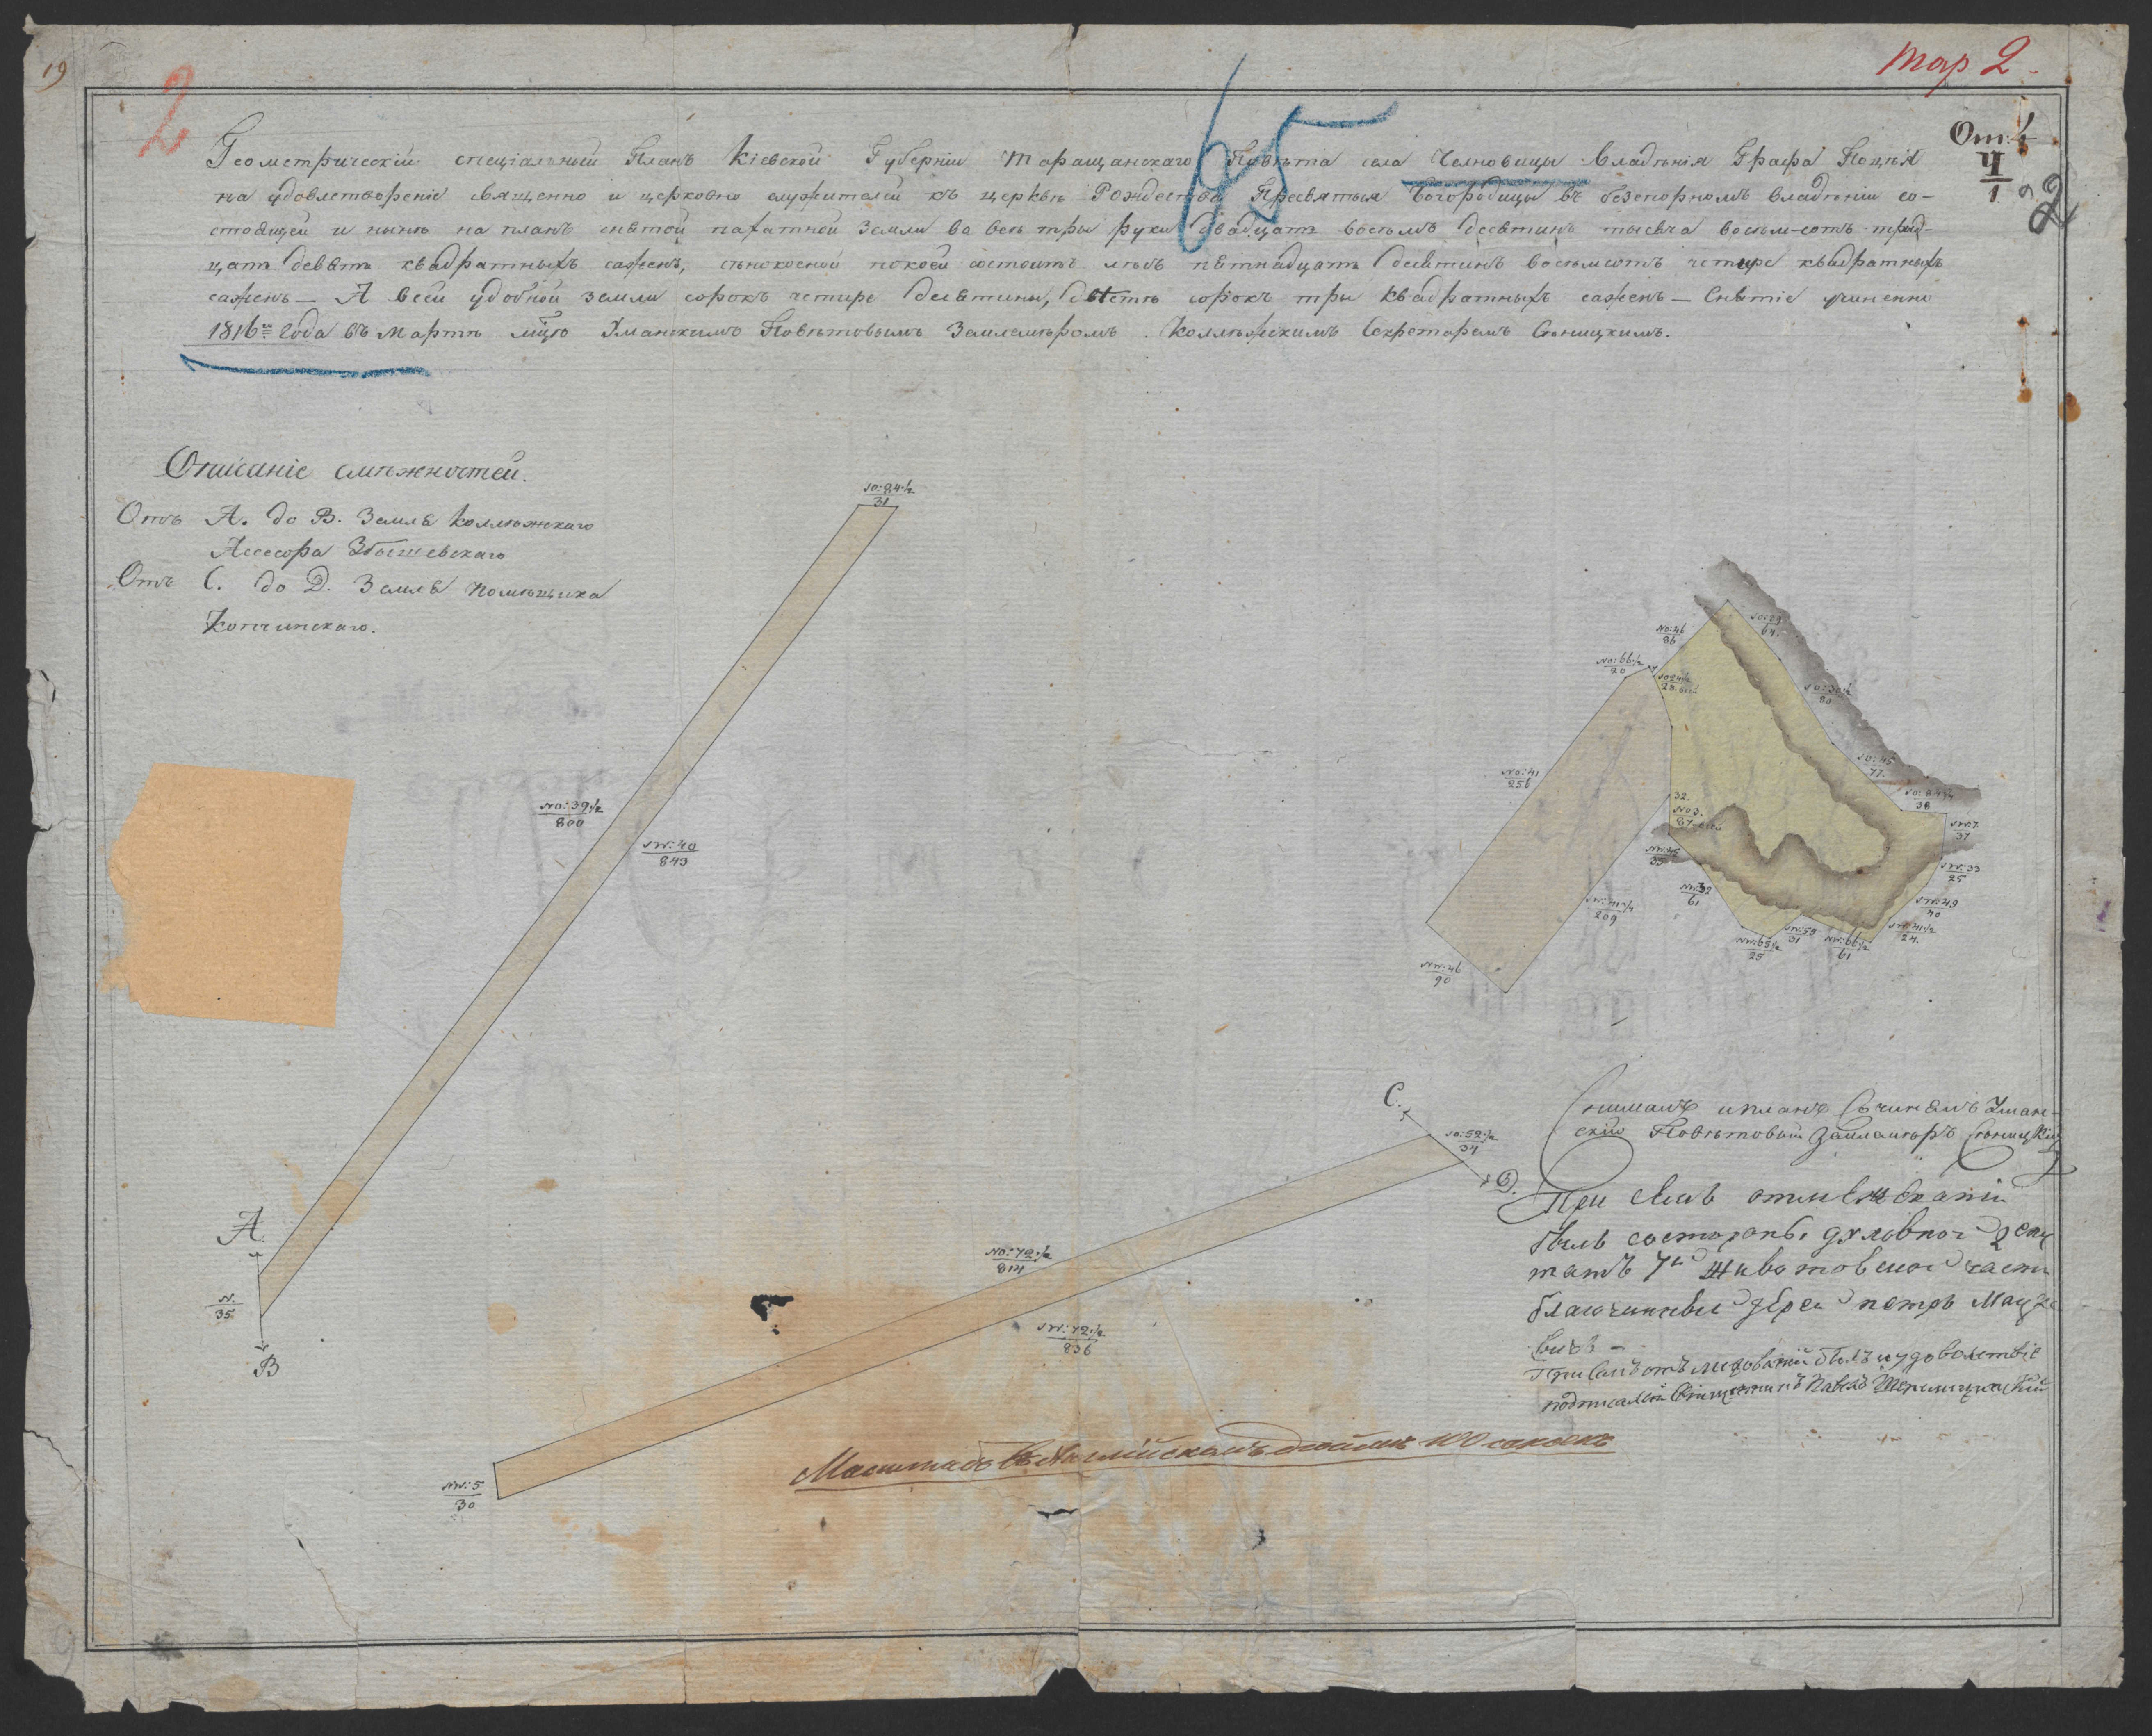 19
2
65
Тар 2.
От: 4
4
1
22
Геометрическій спеціальный Планъ Кіевской Губерніи Таращанскаго Повѣта села Челновицы владѣнія Графа
на удовлетвореніе священно и церковно служителей къ церквѣ Рождества Пресвятыя Богородицы въ безспорномъ владѣніи со-
стоящей и нынѣ на планъ снятой пахатной земли во всѣ тры руки двадцать восемъ десятинъ тысяча восьм-сотъ трид-
цать девять квадратныхъ саженъ, сѣнокосной покоси состоитъ пятнадцать десятинъ восемьсотъ четыре квадратныхъ
саженъ — А всей удобной земли сорокъ четире десятины, двѣстѣ сорокъ тры квадратныхъ саженъ — Снятіе учиненно
1816го года въ Мартѣ мцѣ Уманскимъ Повѣтовымъ Землемѣромъ Коллѣжскимъ Секретаремъ Сѣницкимъ.
Описаніе смѣжностей.
Отъ А. до В. Земля Коллѣжскаго
Асессора Збышевскаго
Отъ С. до D. Земля помѣщика
Копчинскаго.
SO:84½
31
NO:39½
800
SW:40
843
A
N.
35
B
NO:46
86
SO:39
64.
NO:66½
20
SO:30½
80
NO:41
256
SO:45
77.
38
32.
NO3.
87
SW:7.
37
NW:45
35
SW:33
25
NW:32
61
SW:49
40
209
SW:41½
24.
NW:65½
25
SW:55
31
NW:66½
61
NW:46
90
C.
SO:52½
34
D.
NO:72½
814
SW:72½
836
NW:5
30
Снималъ и планъ Сочинялъ Уман-
скій Повѣтовый Землемѣръ Сѣницкій
При семъ отмежеваніи
былъ состороны духовной депу
татъ 7й Животовской части
благочинный Іерей петръ Мац
вичъ —
При семъ отмежованіи былъ и удоволствіе
подписался Священникъ Павелъ
Масштабъ въ Англійскомъ дюймѣ 100 саженъ